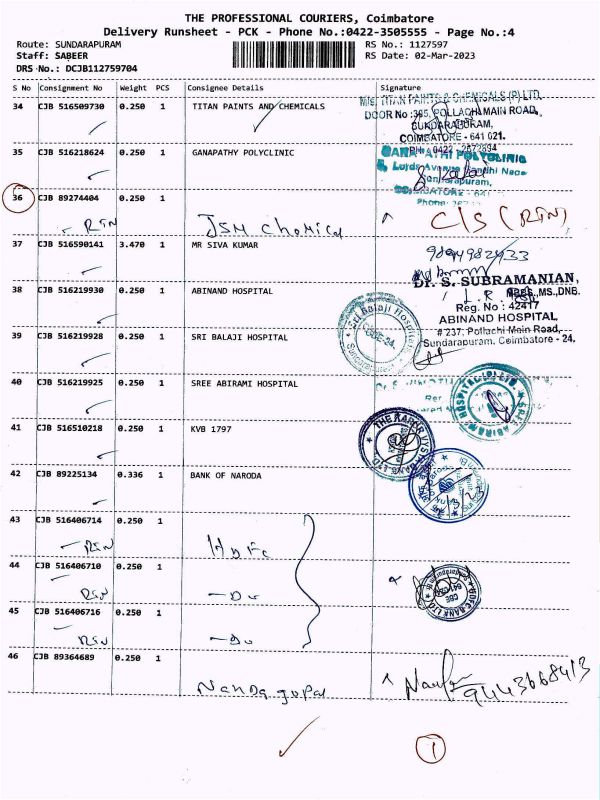 THE PROFESSIONAL COURIERS, Coimbatore
Delivery Runsheet - PCK - Phone No.:0422-3505555 - Page No.:4
Route: SUNDARAPURAM RS No.: 1127597
Staff: SABEER RS Date: 02-Mar-2023
DRS No.: DCJB112759704
S No Consignment No Weight PCS Consignee Details Signature
34 CJB 516509730 0.250 1 TITAN PAINTS AND CHEMICALS
M/S. TITAN PAINTS & CHEMICALS (P) LTD.
DOOR No :385, POLLACHI MAIN ROAD,
SUNDARAPURAM,
COIMBATORE - 641 021.
PH: 0422 - 2672894
35 CJB 516218624 0.250 1 GANAPATHY POLYCLINIC
GANAPATHI POLYCLINIC
Sundarapuram,
COIMBATORE - 641
Phone:
36 CJB 89274404 0.250 1
RTN JSM Chemical C/S (RTN)
37 CJB 516590141 3.470 1 MR SIVA KUMAR
38 CJB 516219930 0.250 1 ABINAND HOSPITAL
Dr. S. SUBRAMANIAN,
MBBS.,MS.,DNB.
Reg. No : 42417
ABINAND HOSPITAL
# 237, Pollachi Main Road,
Sundarapuram, Coimbatore - 24.
39 CJB 516219928 0.250 1 SRI BALAJI HOSPITAL
Sri Balaji Hospital
CODE-24.
40 CJB 516219925 0.250 1 SREE ABIRAMI HOSPITAL
SREE ABIRAMI HOSPITAL (P) LTD.
41 CJB 516510218 0.250 1 KVB 1797
THE KARUR VYSYA BANK LTD
42 CJB 89225134 0.336 1 BANK OF NARODA
43 CJB 516406714 0.250 1
RTN Hdfc
44 CJB 516406710 0.250 1
RTN -Do
HDFC BANK LTD
45 CJB 516406716 0.250 1
RTN -Do
46 CJB 89364689 0.250 1
Nandagopal
9443668413
1